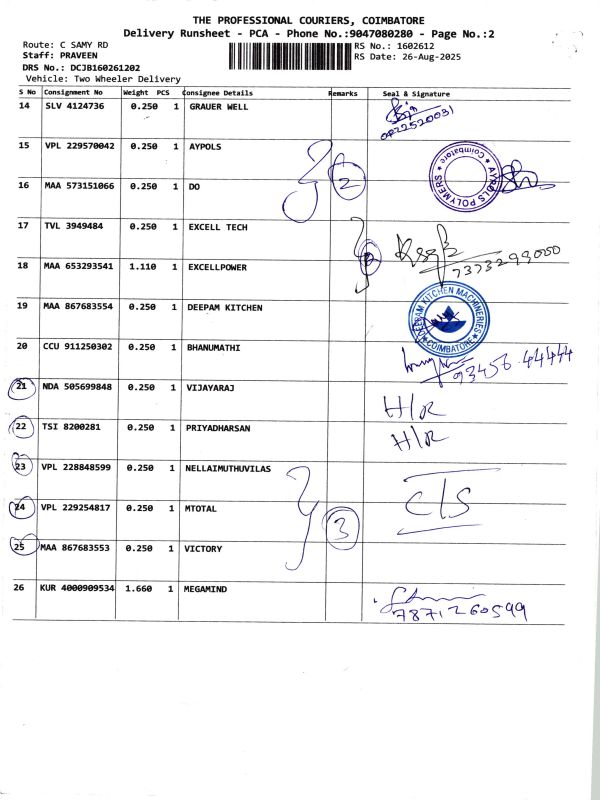 THE PROFESSIONAL COURIERS, COIMBATORE
Delivery Runsheet - PCA - Phone No.:9047080280 - Page No.:2
Route: C SAMY RD RS No.: 1602612
Staff: PRAVEEN RS Date: 26-Aug-2025
DRS No.: DCJB160261202
Vehicle: Two Wheeler Delivery
S No Consignment No Weight PCS Consignee Details Remarks Seal & Signature
14 SLV 4124736 0.250 1 GRAUER WELL
15 VPL 229570042 0.250 1 AYPOLS
AYPOLS POLYMERS * Coimbatore *
16 MAA 573151066 0.250 1 DO 2
17 TVL 3949484 0.250 1 EXCELL TECH
2
7373299000
18 MAA 653293541 1.110 1 EXCELLPOWER
19 MAA 867683554 0.250 1 DEEPAM KITCHEN
DEEPAM KITCHEN MACHINERIES * COIMBATORE *
20 CCU 911250302 0.250 1 BHANUMATHI
93456.44444
21 NDA 505699848 0.250 1 VIJAYARAJ H/R
22 TSI 8200281 0.250 1 PRIYADHARSAN H/R
23 VPL 228848599 0.250 1 NELLAIMUTHUVILAS
24 VPL 229254817 0.250 1 MTOTAL 3 C/S
25 MAA 867683553 0.250 1 VICTORY
26 KUR 4000909534 1.660 1 MEGAMIND
7871260599